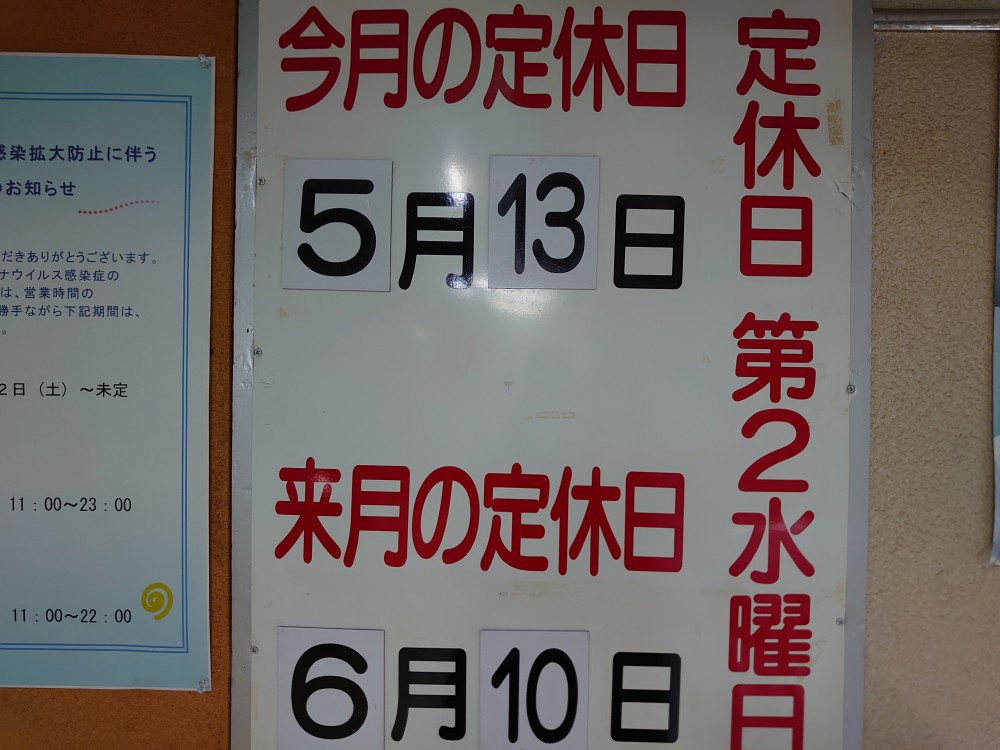 感染拡大防止に伴う
のお知らせ
だきありがとうございます。
ナウイルス感染症の
は、営業時間の
勝手ながら下記期間は、
。
2日（土）～未定
11：00～23：00
11：00～22：00
今月の定休日
5月13日
来月の定休日
6月10日
定休日 第2水曜日